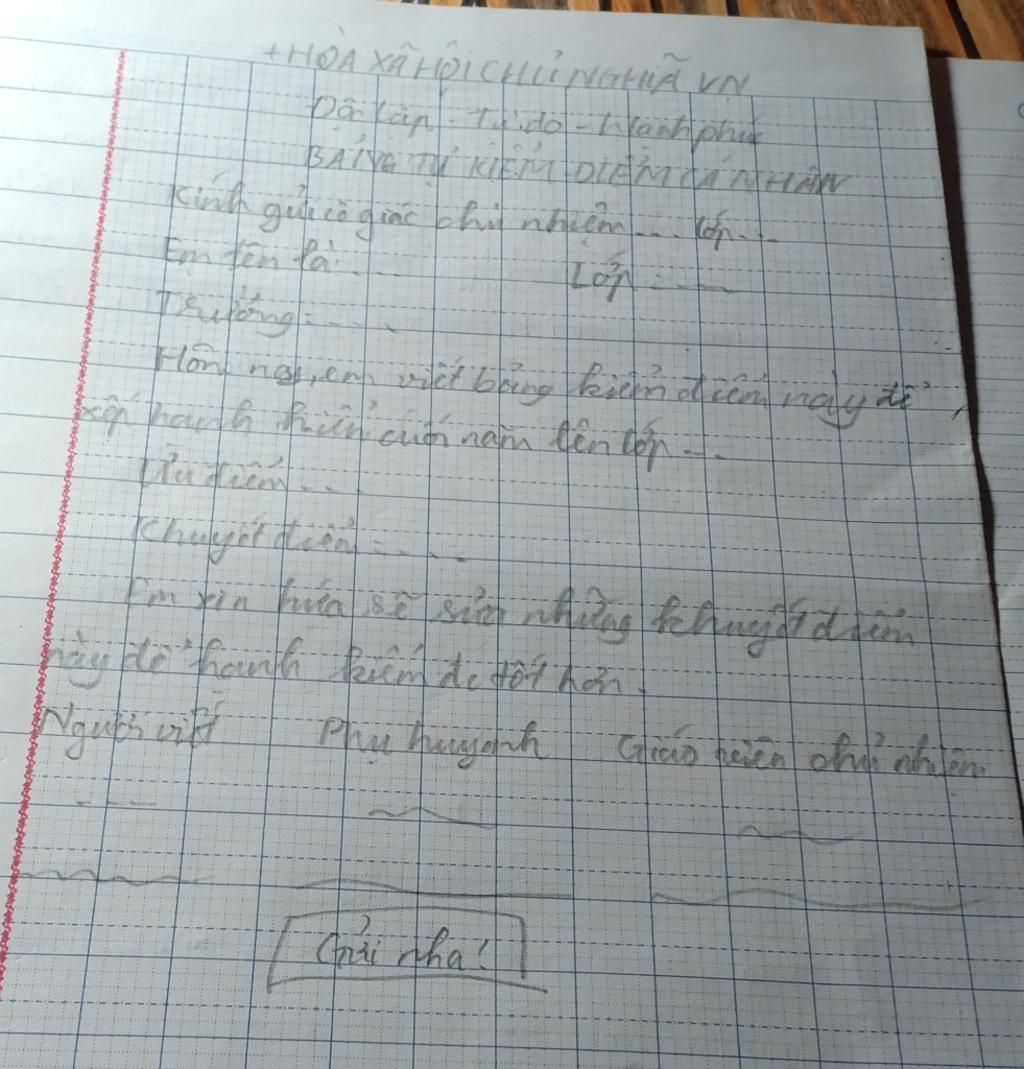 +HÒA XÃ HỘI CHỦ NGHĨA VN
Độc lập - Tự do - Hạnh phúc
BẢNG TỰ KIỂM ĐIỂM CÁ NHÂN
Kính gửi cô giáo chủ nhiệm ... lớp...
Em tên là: ... Lớp: ....
Trường: ....
Hôm nay, em viết bảng kiểm điểm này để
xếp hạnh kiểm cuối năm lên lớp ...
Ưu điểm ...
Khuyết điểm: ....
Em xin hứa sẽ sửa những khuyết điểm
này để hạnh kiểm đc tốt hơn.
Người viết Phụ huynh Giáo viên chủ nhiệm
Gửi nha!